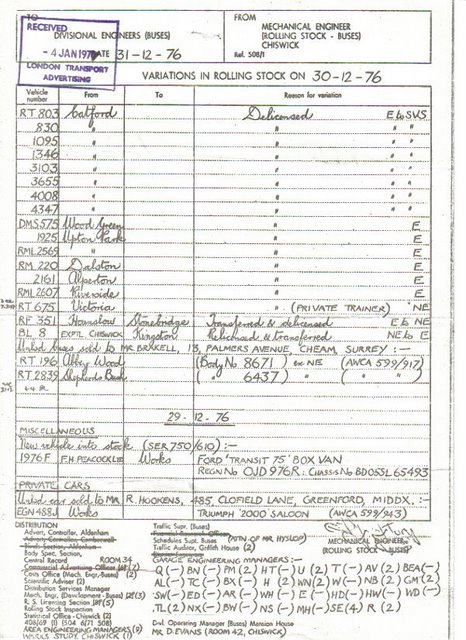 TO
DIVISIONAL ENGINEERS (BUSES)
RECEIVED
- 4 JAN 197
LONDON TRANSPORT
ADVERTISING
DATE 31-12-76
FROM
MECHANICAL ENGINEER
(ROLLING STOCK - BUSES)
CHISWICK
Ref. 508/1
VARIATIONS IN ROLLING STOCK ON 30-12-76
Vehicle number From To Reason for variation
RT 803 Catford Delicensed E to SVS
830 " " " "
1095 " " " "
1346 " " " "
3103 " " " "
3655 " " " "
4008 " " " "
4347 " " " "
DMS 575 Wood Green " E
1925 Upton Park " E
RML 2565 " " E
RM 220 Dalston " E
2161 Alperton " E
RML 2607 Riverside " E
RT 675 Victoria " (PRIVATE TRAINER) NE
RF 351 Hounslow Stonebridge Transferred & delicensed E to NE
BL 8 EXPTL CHISWICK Kingston Relicensed & transferred NE to E
Unltd buses sold to MR BRAKELL, 13, PALMERS AVENUE, CHEAM, SURREY :—
RT 196 Abbey Wood (Body No 8671) ex NE (AWCA 599/917)
RT 2839 Shepherds Bush ( " 6437) " ( " " )
29-12-76
MISCELLANEOUS
New vehicle into stock (SER 750/610) :—
1976F F.H PEACOCK LTD Works FORD 'TRANSIT 75' BOX VAN
REGN NO OJD 976R : CHASSIS NO BD05SL 65493
PRIVATE CARS
Unltd car sold to MR R. HOOKENS, 485 CLOFIELD LANE, GREENFORD, MIDDX, :—
EGN 488J Works TRIUMPH '2000' SALOON (AWCA 599/943)
MECHANICAL ENGINEER
(ROLLING STOCK - BUSES)
DISTRIBUTION
Advert. Controller, Aldenham
Body Spec. Section,
Central Record ROOM 34
Commercial Advertising Officer (2)
Costs Office (Mech. Engr.-Buses) (2)
Scientific Adviser (2)
Distribution Services Manager
Mech. Engr. (Development - Buses) (3)
R. S. Licensing Section (5)
Rolling Stock Inspectors
Statistical Office - Chiswick (2)
408/69 (1) 504 6/71 508)
AREA ENGINEERING MANAGERS (9)
WORKS STUDY, CHISWICK (1)
Traffic Supr. (Buses)
Schedules Supt. Buses (ATTN OF MR HYSLOP)
Traffic Auditor, Griffith House (2)
GARAGE ENGINEERING MANAGERS :—
Q (—) B (—) PM (2) HT (—) U (2) T (—) AV (2) BEA (—)
AL (—) TC (—) BX (—) H (2) WN (2) W (—) NB (2) GM (2)
SW (—) ED (—) AR (—) WH (—) E (—) HD (—) HW (—) WD (—)
TL (2) NX (—) BW (—) NS (—) MH (—) SE (4) R (2)
Divl. Operating Manager (Buses) Mansion House
MR D. EVANS (ROOM 42, CHISWICK)